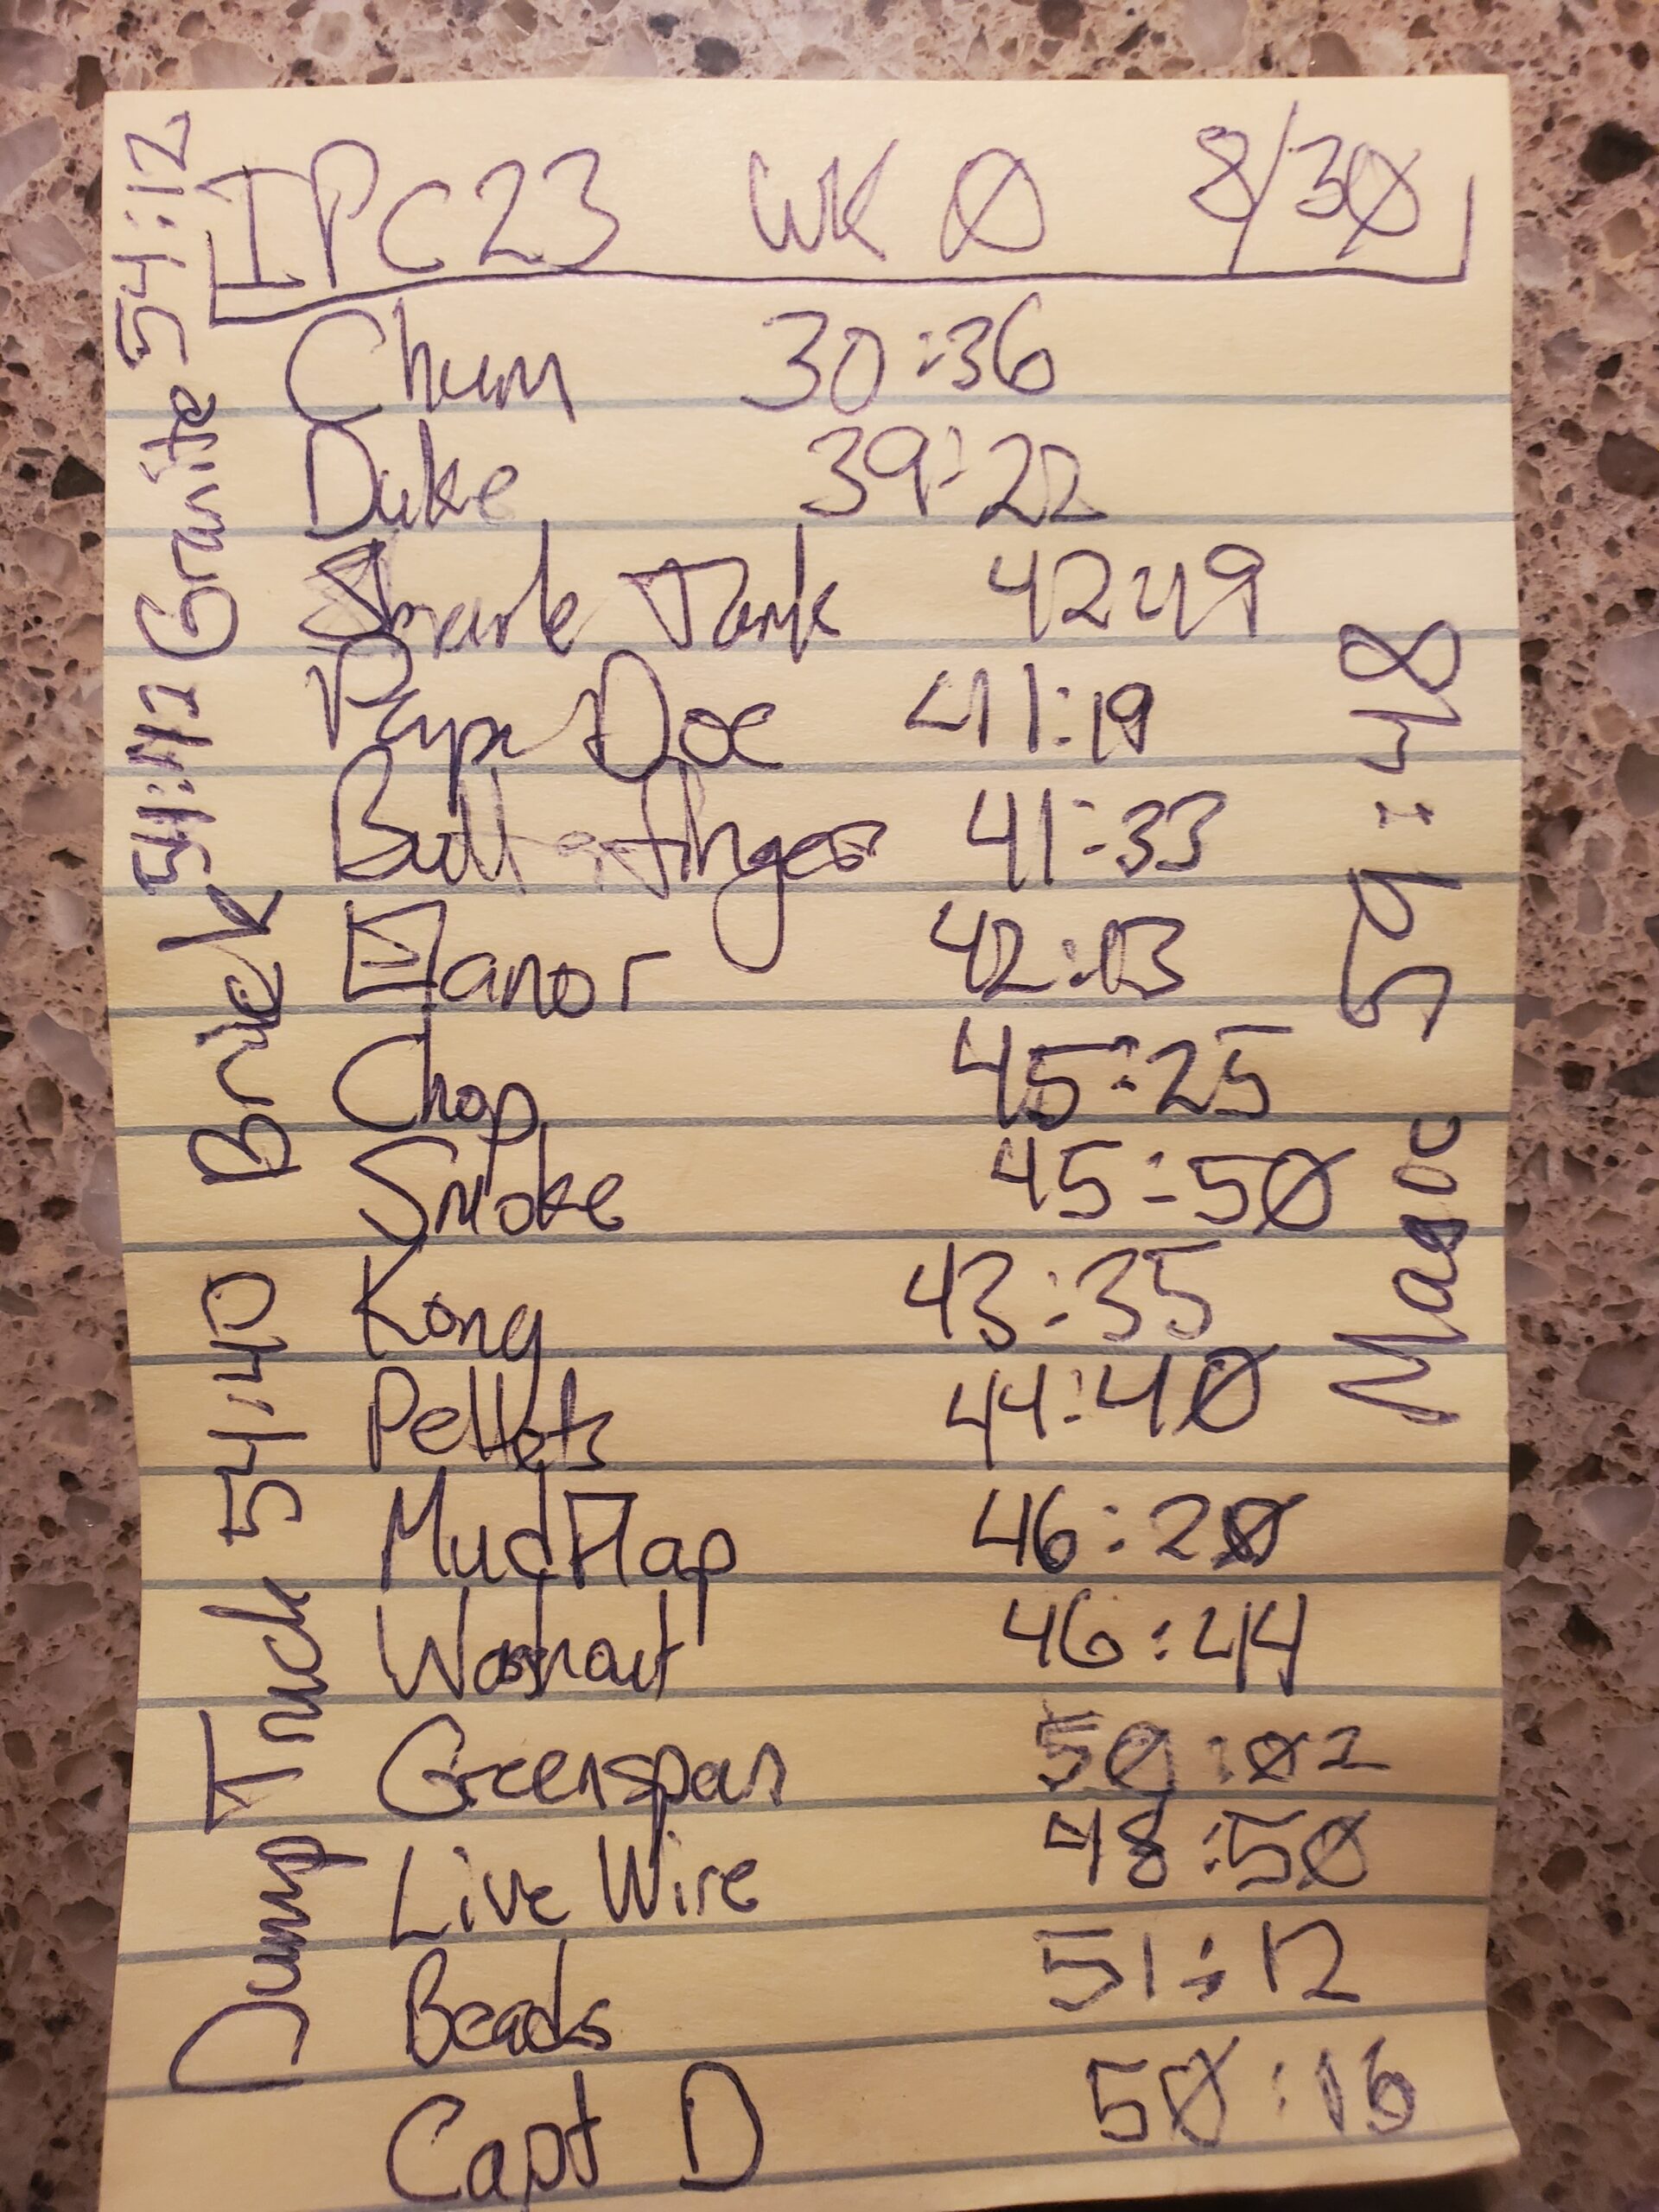 IPC23 WK 0 8/30
Chum 30:36
Duke 39:22
Shark Tank 42:49
Papa Doc 41:19
Butterfinger 41:33
Manor 42:13
Chop 45:25
Smoke 45:50
Kong 43:35
Pellets 44:40
MudFlap 46:20
Washout 46:44
Greenspan 50:02
Live Wire 48:50
Beads 51:12
Capt D 50:16
Dump Truck 54:40
Brick 54:42
Granite 54:12
59:48